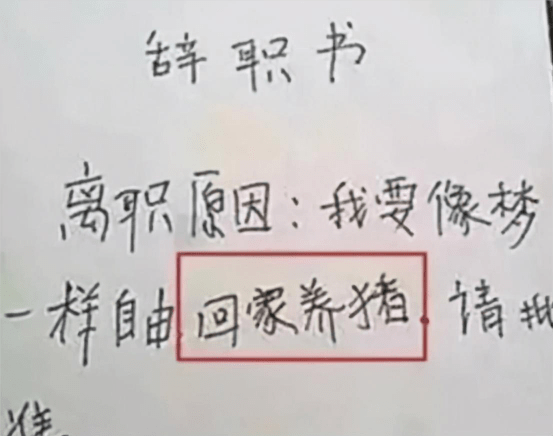 辞职书
离职原因：我要像梦
一样自由回家养猪.请批
准